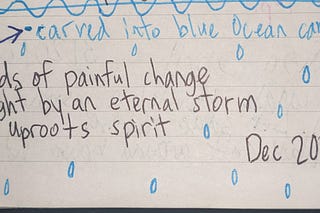 carved into blue Ocean
of painful change
by an eternal storm
uproots spirit
Dec 20